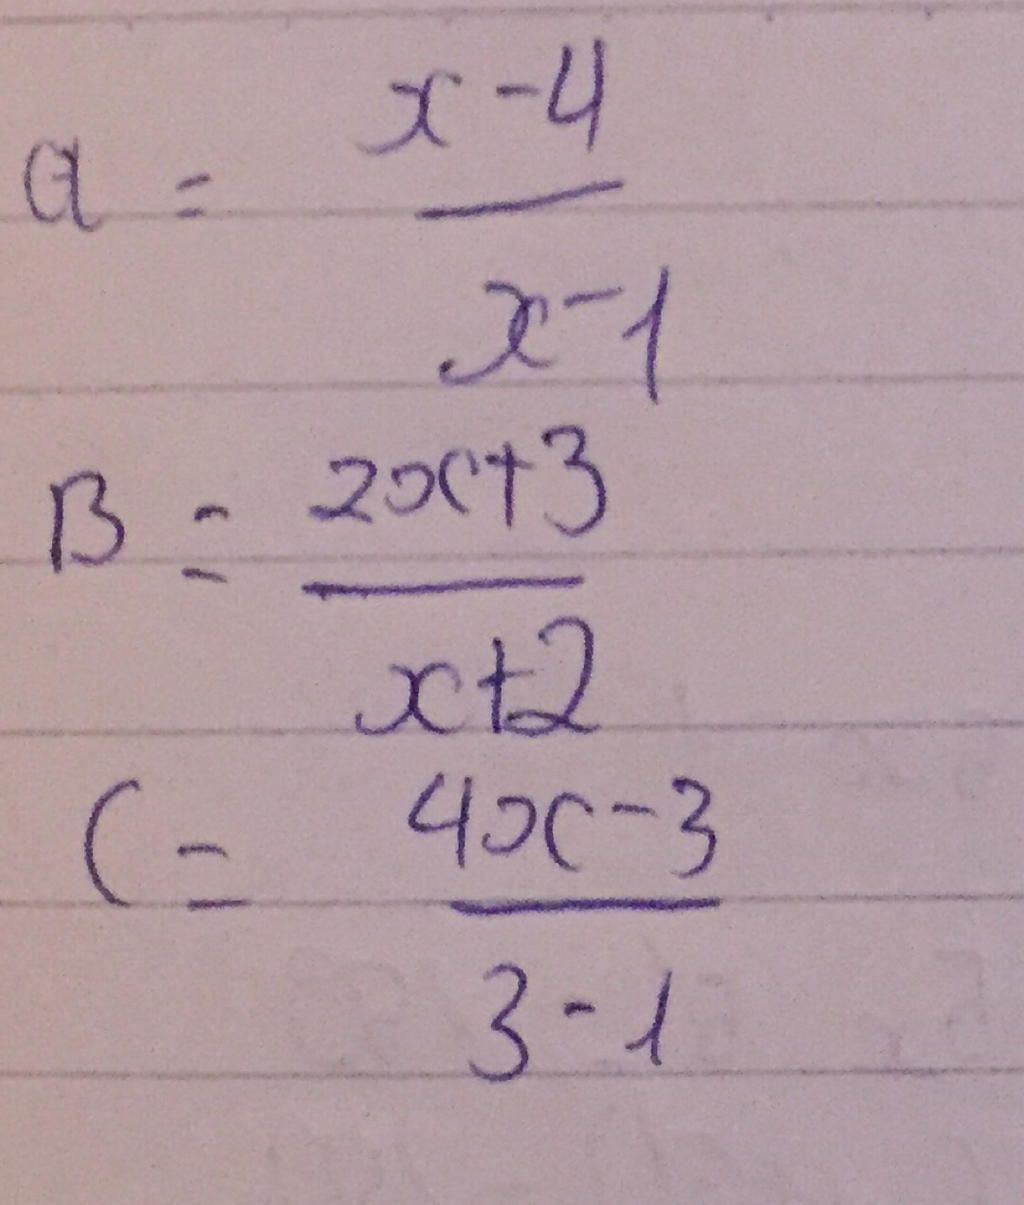 a = x - 4
x - 1
B = 2x + 3
x + 2
C = 4x - 3
3 - 1